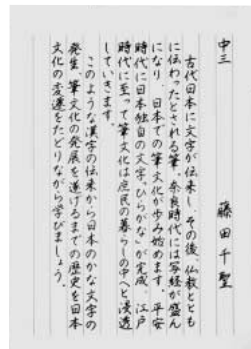 中三　藤田千聖
古代日本に文字が伝来し、その後、仏教ととも
に伝わったとされる筆。奈良時代には写経が盛ん
になり、日本での筆文化が歩み始めます。平安
時代に日本独自の文字“ひらがな”が完成、江戸
時代に至って筆文化は庶民の暮らしの中へと浸透
していきます。
このような漢字の伝来から日本のかな文字の
発生、筆文化の発展を遂げるまでの歴史を日本
文化の変遷をたどりながら学びましょう。